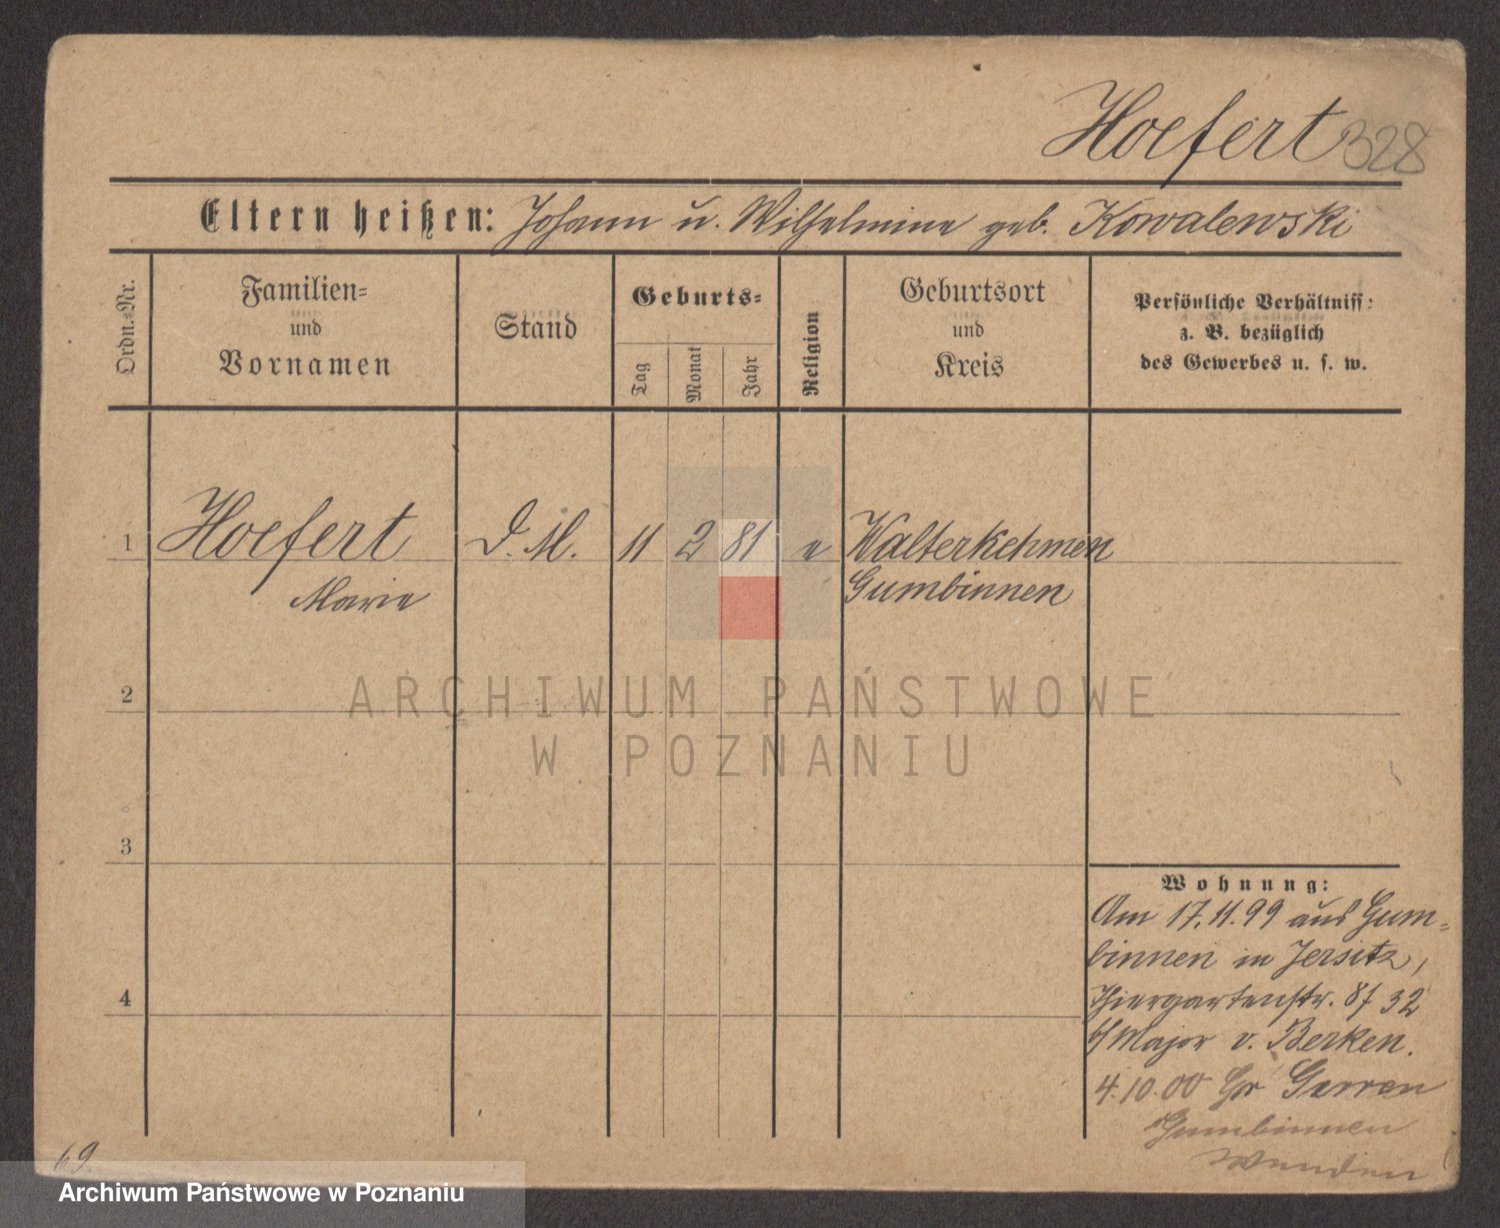 Hoefert 328
Eltern heißen: Johann u. Wilhelmine geb. Kowalewski
Ordn.-Nr.
Familien-
und
Vornamen
Stand
Geburts-
Tag
Monat
Jahr
Religion
Geburtsort
und
Kreis
Persönliche Verhältniss:
z. B. bezüglich
des Gewerbes u. s. w.
1 Hoefert D. M. 11 2 81 e Walterkehmen
Marie Gumbinnen
2
ARCHIWUM PAŃSTWOWE
W POZNANIU
3
Wohnung:
Am 17.11.99 aus Gum-
binnen in Jersitz,
4 Thiergartenstr. 8f 32
b/Major v. Berken.
4.10.00 Gr
Gumbinnen
69.
Archiwum Państwowe w Poznaniu